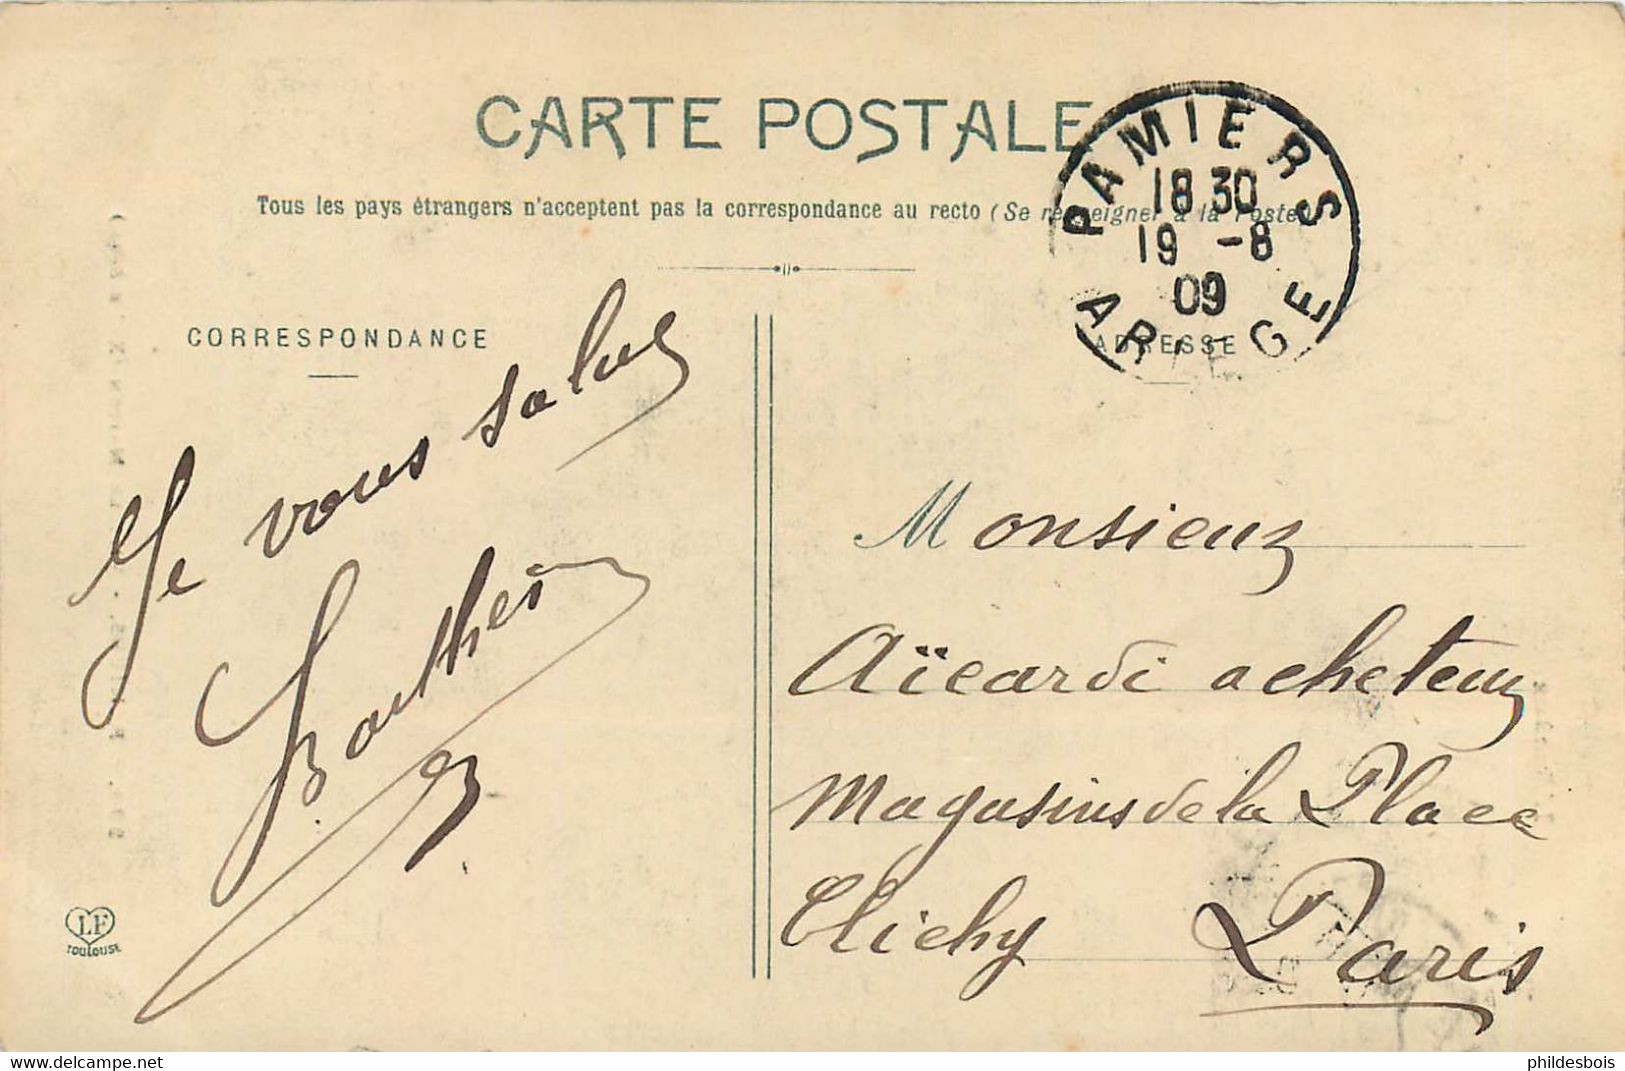 CARTE POSTALE
Tous les pays étrangers n'acceptent pas la correspondance au recto (Se renseigner à la Poste)
PAMIERS
18 30
19 -8
09
ARIEGE
CORRESPONDANCE
Je vous salue
ADRESSE
Monsieur
Aïcardi acheteur
Magasins de la Place
Clichy Paris
LF
TOULOUSE
delcampe.net
phildesbois